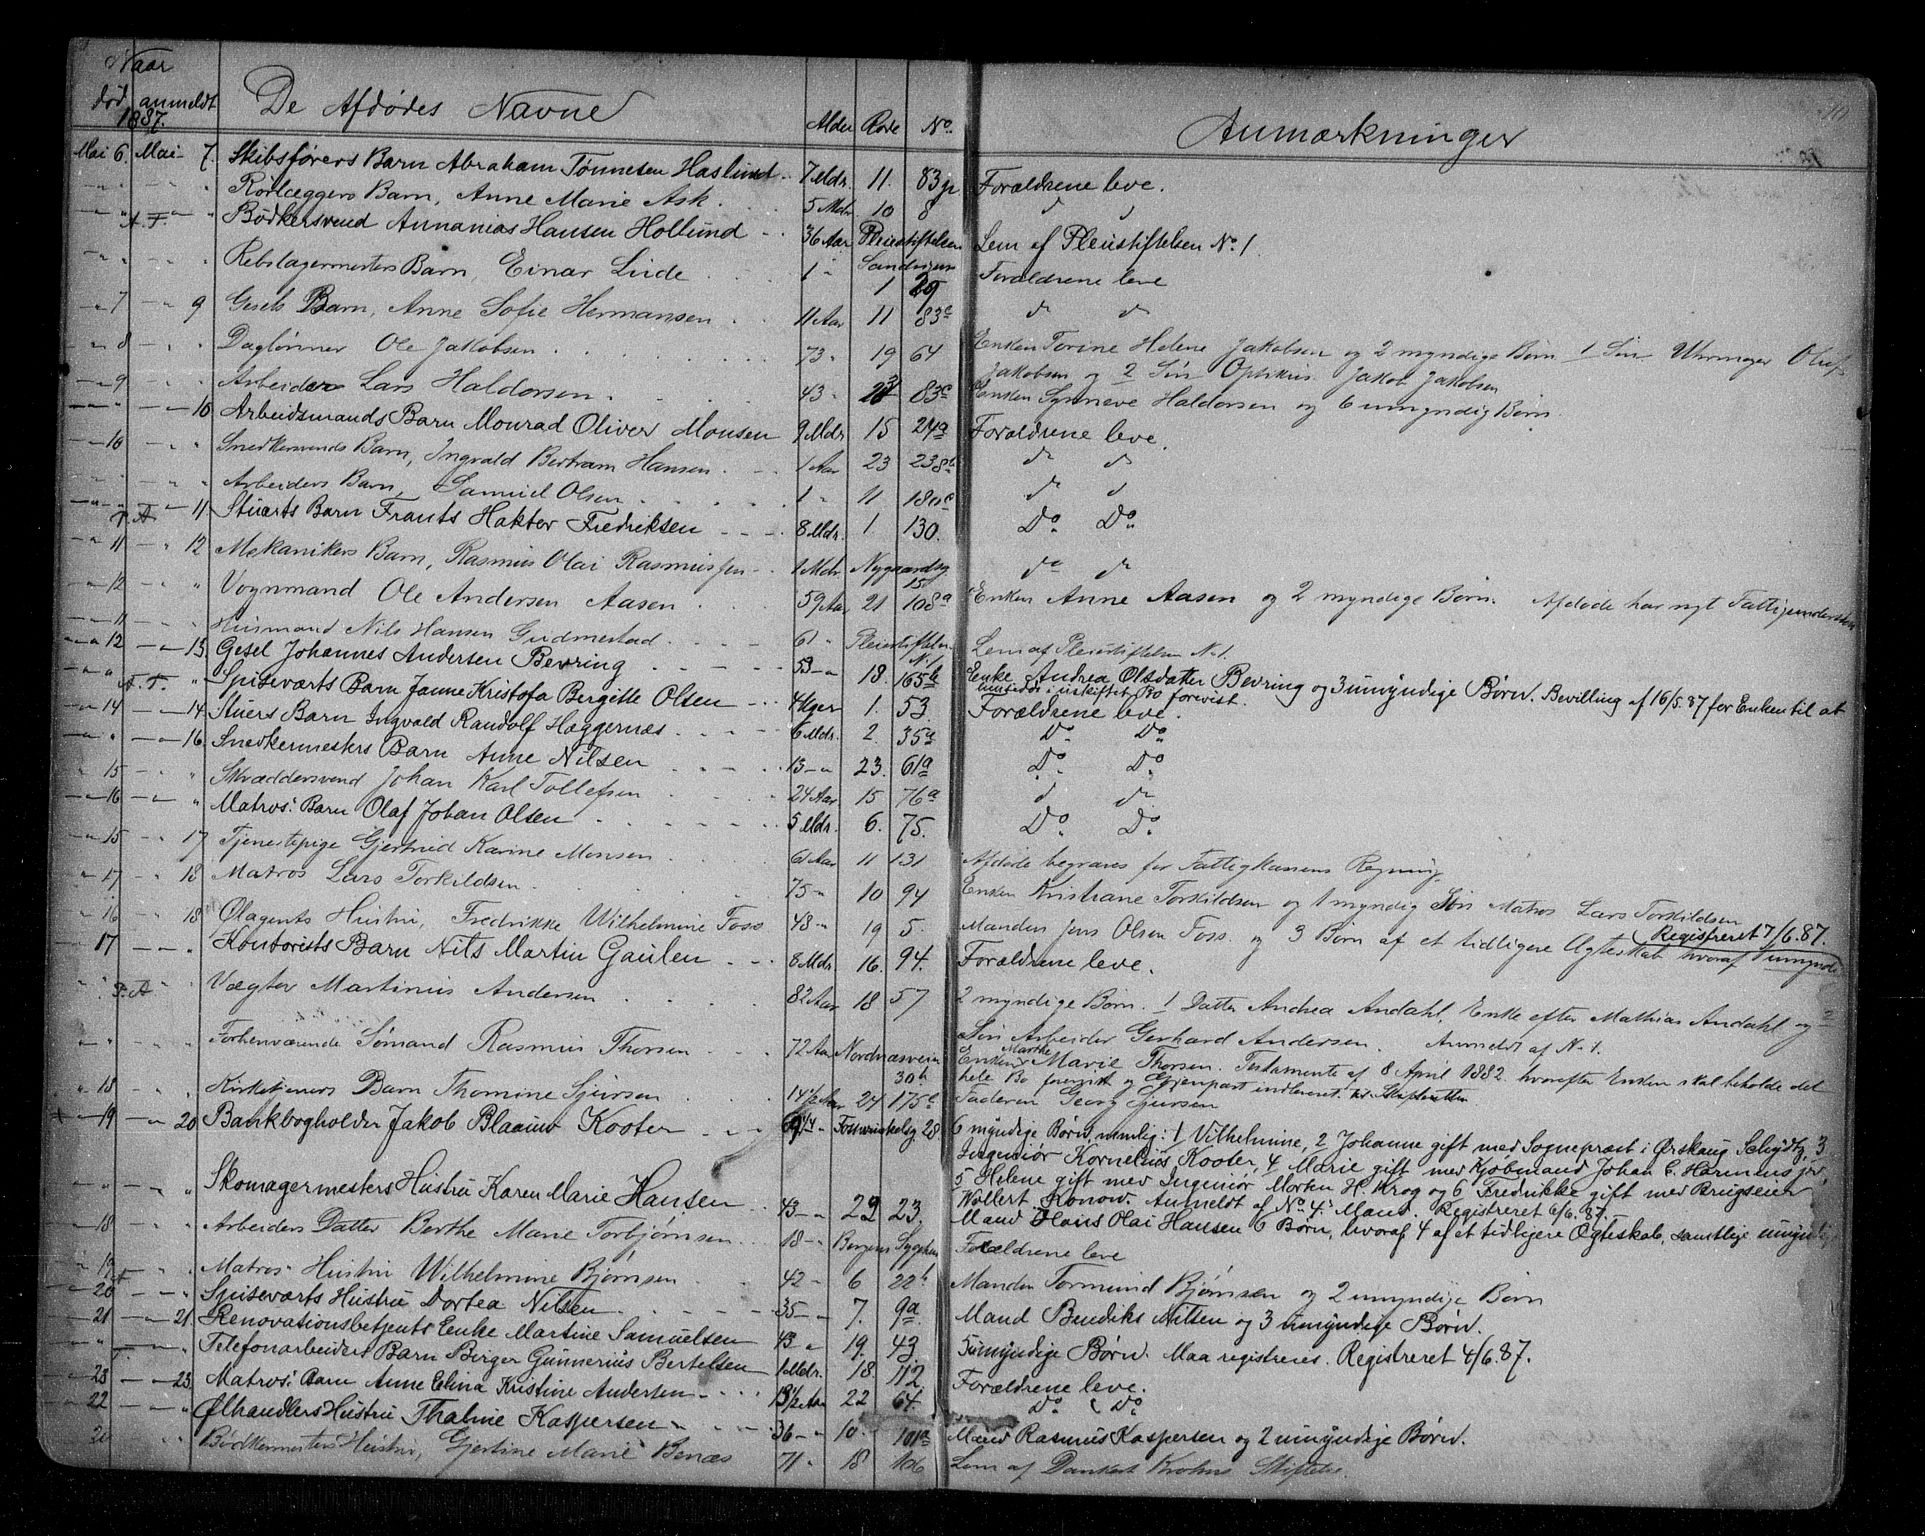 Naar
død anmeldt De Afdødes Navne Alder Rode No. Anmærkninger
1887.
Mai 6. Mai 7. Skibsførers Barn Abraham Tønnesen Haslund 7 Mdr. 11. 83 Forældrene leve.
" " Rørlæggers Barn, Anne Marie Ask. 5 Mdr. 10 8 d d
" " Bødkersvend Annanias Hansen Hollund 36 Aar Pleiestiftelsen Lem af Pleiestiftelsen No. 1.
A. F.
" " Rebslagermesters Barn, Einar Linde 1 " Sandvigen 1 Forældrene leve
" 7 " 9 Gesels Barn, Anne Sofie Hermansen 11 Aar 11 83c do do
" 8 " " Daglønner Ole Jakobsen 73 " 19 64 Enken Torine Helene Jakobsen og 2 myndige Børn 1 Søn Uhrmager Oluf
Jakobsen og 2 Søn Optikus Jakob Jakobsen
" 9 " " Arbeider Lars Haldorsen 43 " 83c Enken Synneve Haldorsen og 6 umyndig Børn.
" " " 10 Arbeidsmands Barn Monrad Oliver Monsen 9 Mdr. 15 24a Forældrene leve.
" 10 " " Snedkersvends Barn, Ingvald Bertram Hansen 1 Aar 23 23 do do
" " " " Arbeiders Barn, Samuel Olsen 1 " 11 180c do d
" " " 11 Stuerts Barn Frants Haktor Fredriksen 8 Mdr. 1. 130. Do. Do.
" 11 " 12 Mekanikers Barn, Rasmus Olai Rasmussen 1 Mdr Nygaardsg 15 do do
" 12 " " Vognmand Ole Andersen Aasen 59 Aar 21 108a Enken Anne Aasen og 2 myndige Børn. Afdøde har nyt Fattigunderstøt
" 11 " " Husmand Nils Hansen Gudmestad 61 " Pleiestiftelsen N. 1 Lem af Pleiestiftelsen N. 1.
" 12 " 13. Gesel Johannes Andersen Bevring 53 " 18. 165b Enke Andrea Olsdatter Bevring og 3 umyndige Børn. Bevilling af 16/5. 87 for Enken til at
hensidde i uskiftet Bo forevist.
A. F. " Spiseværts Barn Janne Kristofa Bergitte Olsen 4 Uger 1. 53. Forældrene leve.
" 14 " 14. Stuers Barn Ingvald Randolf Hæggernæs 6 Mdr. 2. 35a Do. Do.
" " " 16. Snedkermesters Barn Anne Nilsen 13 " 23. 61a Do. Do.
" 15 " " Skræddersvend Johan Karl Tollefsen 24 Aar 15 76a d do
" 16 " " Matros: Barn Olaf Johan Olsen 5 Mdr. 6. 75. Do. Do.
" 15 " 17 Tjenestepige Gjertrud Karine Monsen 61 Aar 11 131 Afdøde begraves for Fattigkassens Regning.
" 17 " 18 Matros Lars Torkildsen 75 " 10 94 Enken Kristiane Torkildsen og 1 myndig Søn Matros Lars Torkildsen
" 16 " 18 Ølagents Hustru, Fredrikke Wilhelmine Foss 48 " 19 5. Manden Jens Olsen Foss. og 3 Børn af et tidligere Ægteskab hvoraf 1 umyndi (Registreret 7/6. 87.
" 17 " " Kontorists Barn Nils Martin Gaulen 8 Mdr. 16. 94. Forældrene leve.
" " " Vægter Martinus Andersen 82 Aar 18 57 2 myndige Børn. 1 Datter Andrea Andahl, Enke efter Mathias Andahl og 2
Søn Arbeider Gerhard Andersen. Anmeldt af N. 1.
" " " Forhenværende Sømand Rasmus Thorsen 72 Aar Nordnæsveien 30b Enken Marthe Marie Thorsen. Testamente af 8 April 1882 hvorefter Enken skal beholde det
hele Bo forevist og Gjenpart indleveret til Skifteretten.
" 18 " " Kirketjeners Barn Thomine Sjursen 14 1/2 Aar 24 175c Faderen Georg Sjursen
" 19 " 20 Bankbogholder Jakob Blaauw Kooter Fosswinkelsg. 28 6 myndige Børn, nemlig: 1 Vilhelmine, 2 Johanne gift med Sognepræst i Ørskaug Schydtz, 3
Ingeniør Kornelius Kooter, 4 Marie gift med Kjøbmand Johan C. Harmens
5 Helene gift med Ingeniør Morten H. Krog og 6 Fredrikke gift med Brugseier
Wollert Konow. Anmeldt af No. 4. Mand. Registreret 6/6. 87.
" " " Skomagermesters Hustru Karen Marie Hansen 43 " 22 23. Mand Hans Olai Hansen 6 Børn, hvoraf 4 af et tidligere Ægteskab, samtlige umyndig
" 18 " " Arbeiders Datter Berthe Marie Torbjørnsen 18 " Bergens Sygehus Forældrene leve
" 19 " " Matros Hustru Wilhelmine Bjørnsen 42 " 6 22b Manden Tormund Bjørnsen og 2 umyndige Børn
" 20 " " Spiseværts Hustru Dortea Nilsen 35 " 7. 9a Mand Bendiks Nilsen og 3 umyndige Børn.
" 21 " 21. Renovationsbetjents Enke Martine Samuelsen 43 " 19. 43 5 umyndige Børn. Maa registreres. Registreret 4/6. 87.
" " Telefonarbeiders Barn Birger Gunnerius Bertelsen 1 Mdr. 18. 112 Forældrene leve.
" 23 " 23. Matros: Barn Anne Elina Kristine Andersen 1/2 Aar 22 64. Do. Do.
" 22 " " Ølhandlers Hustru Thaline Kaspersen 36 " 10. 101a Mand Rasmus Kaspersen og 2 umyndige Børn.
20 " " Bødkermesters Hustru, Gjertine Marie Benæs 71 " 18 106 Lem af Danckert Krohns Stiftelse.